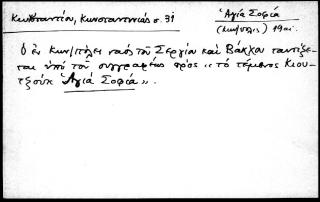 Κωνσταντίου, Κωνσταντινιάς σ. 31
Ἁγία Σοφία
(Κων/πολις) 19αι.
Ὁ ἐν Κων/πόλει ναός τοῦ Σεργίου καὶ Βάκχου ταυτίζε-
ται ὑπό τοῦ συγγραφέως πρός "τό τέμενος Κιου-
τξούκ Ἁγιά Σοφιά".